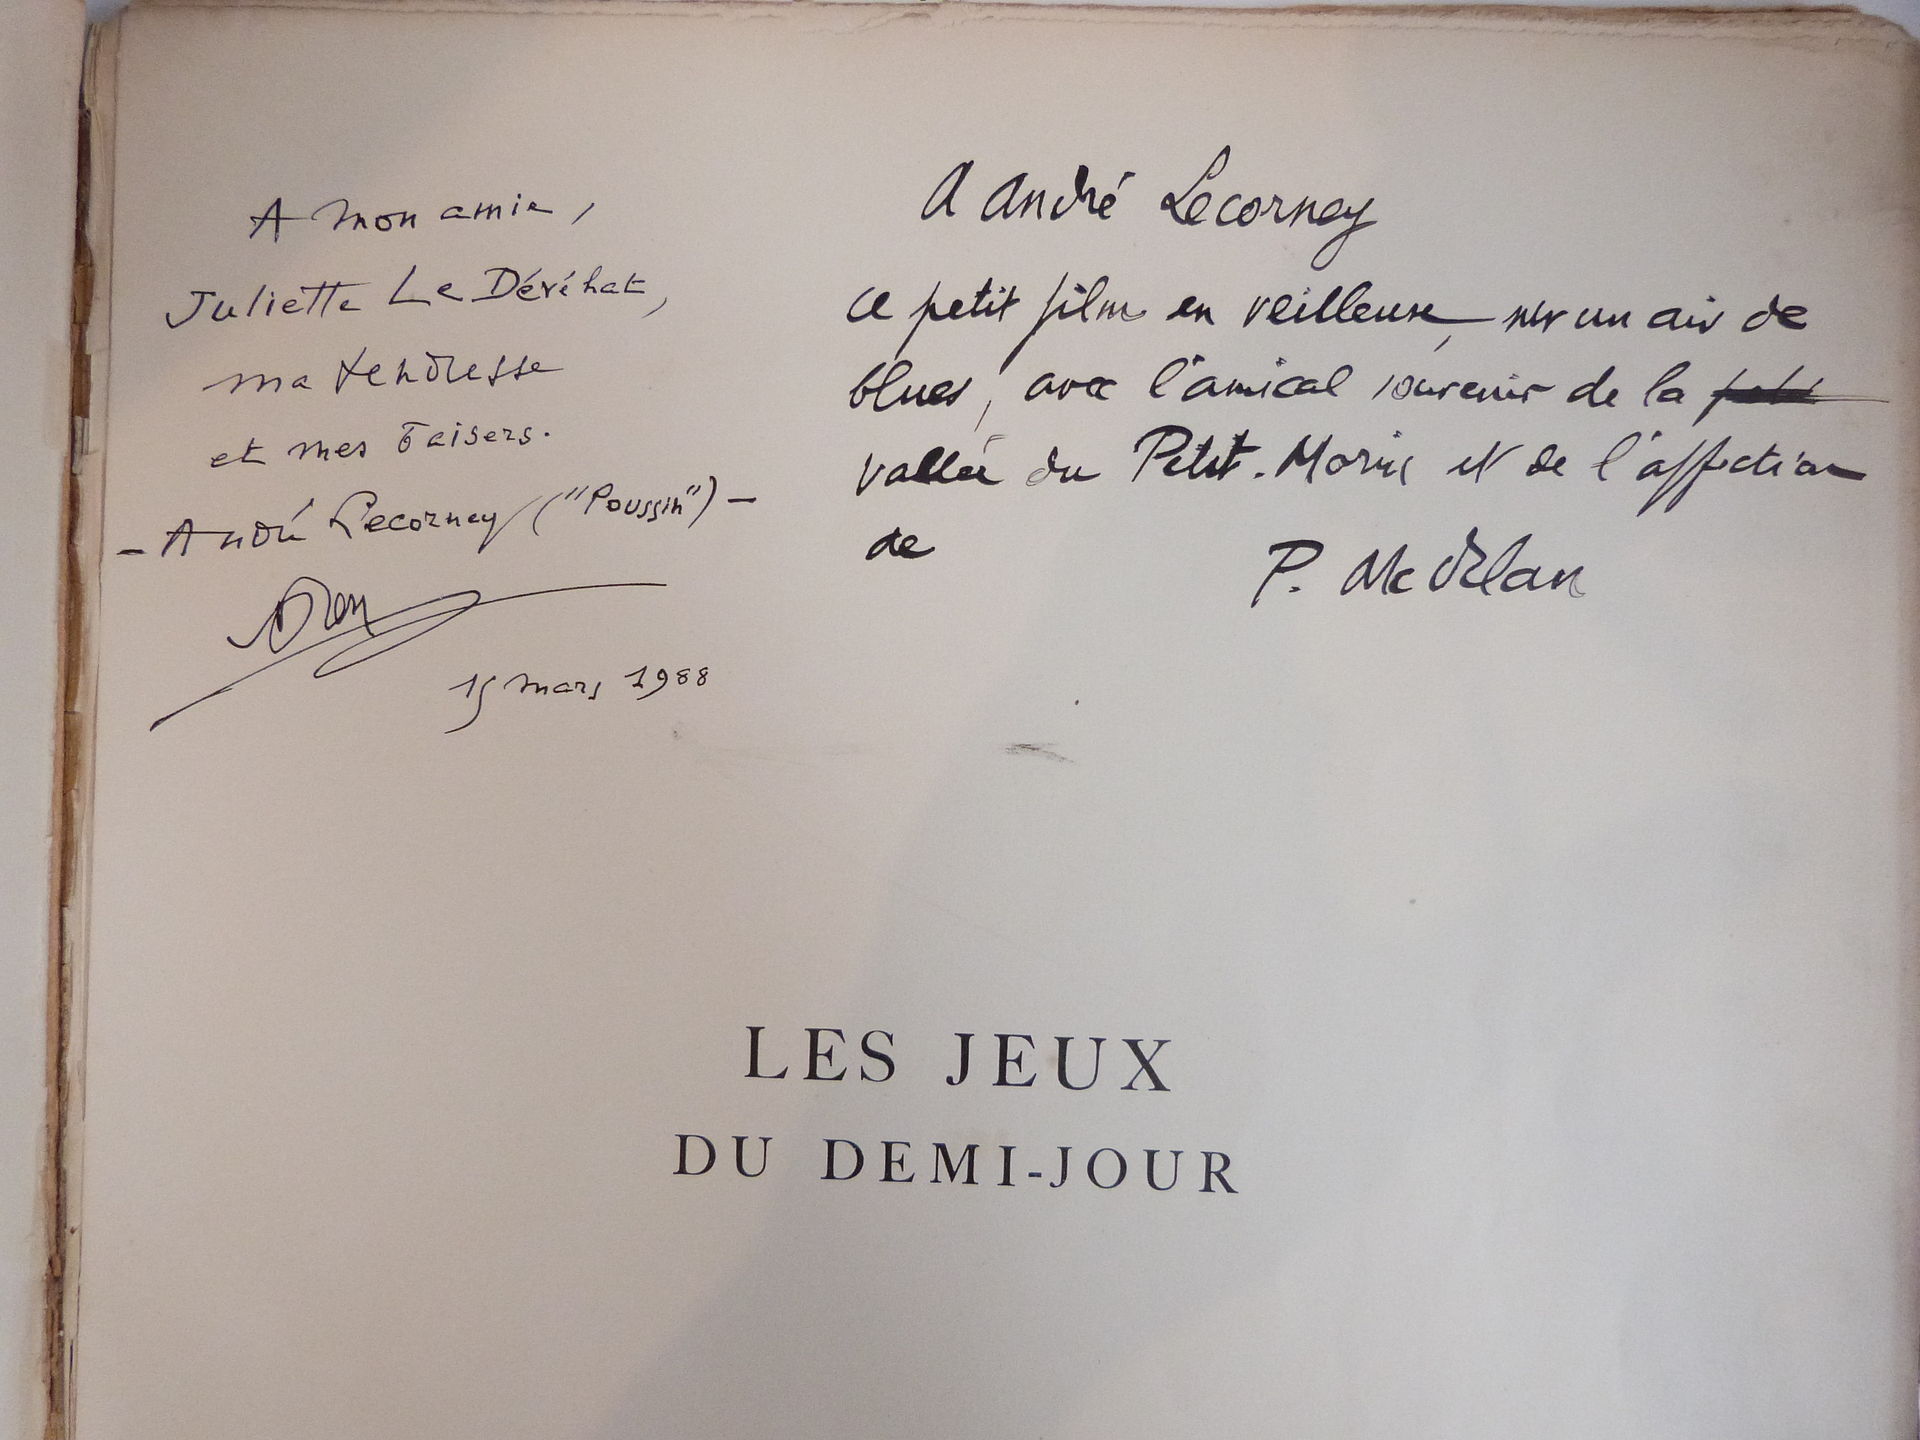 A mon amie,
Juliette Le Déréhat,
ma tendresse
et mes baisers.
– André Lecorney ("Poussin") –
15 mars 1988
A André Lecorney
ce petit film en veilleuse, sur un air de
blues, avec l'amical souvenir de la
vallée du Petit-Morin et de l'affection
de
P. Mc Orlan
LES JEUX
DU DEMI-JOUR